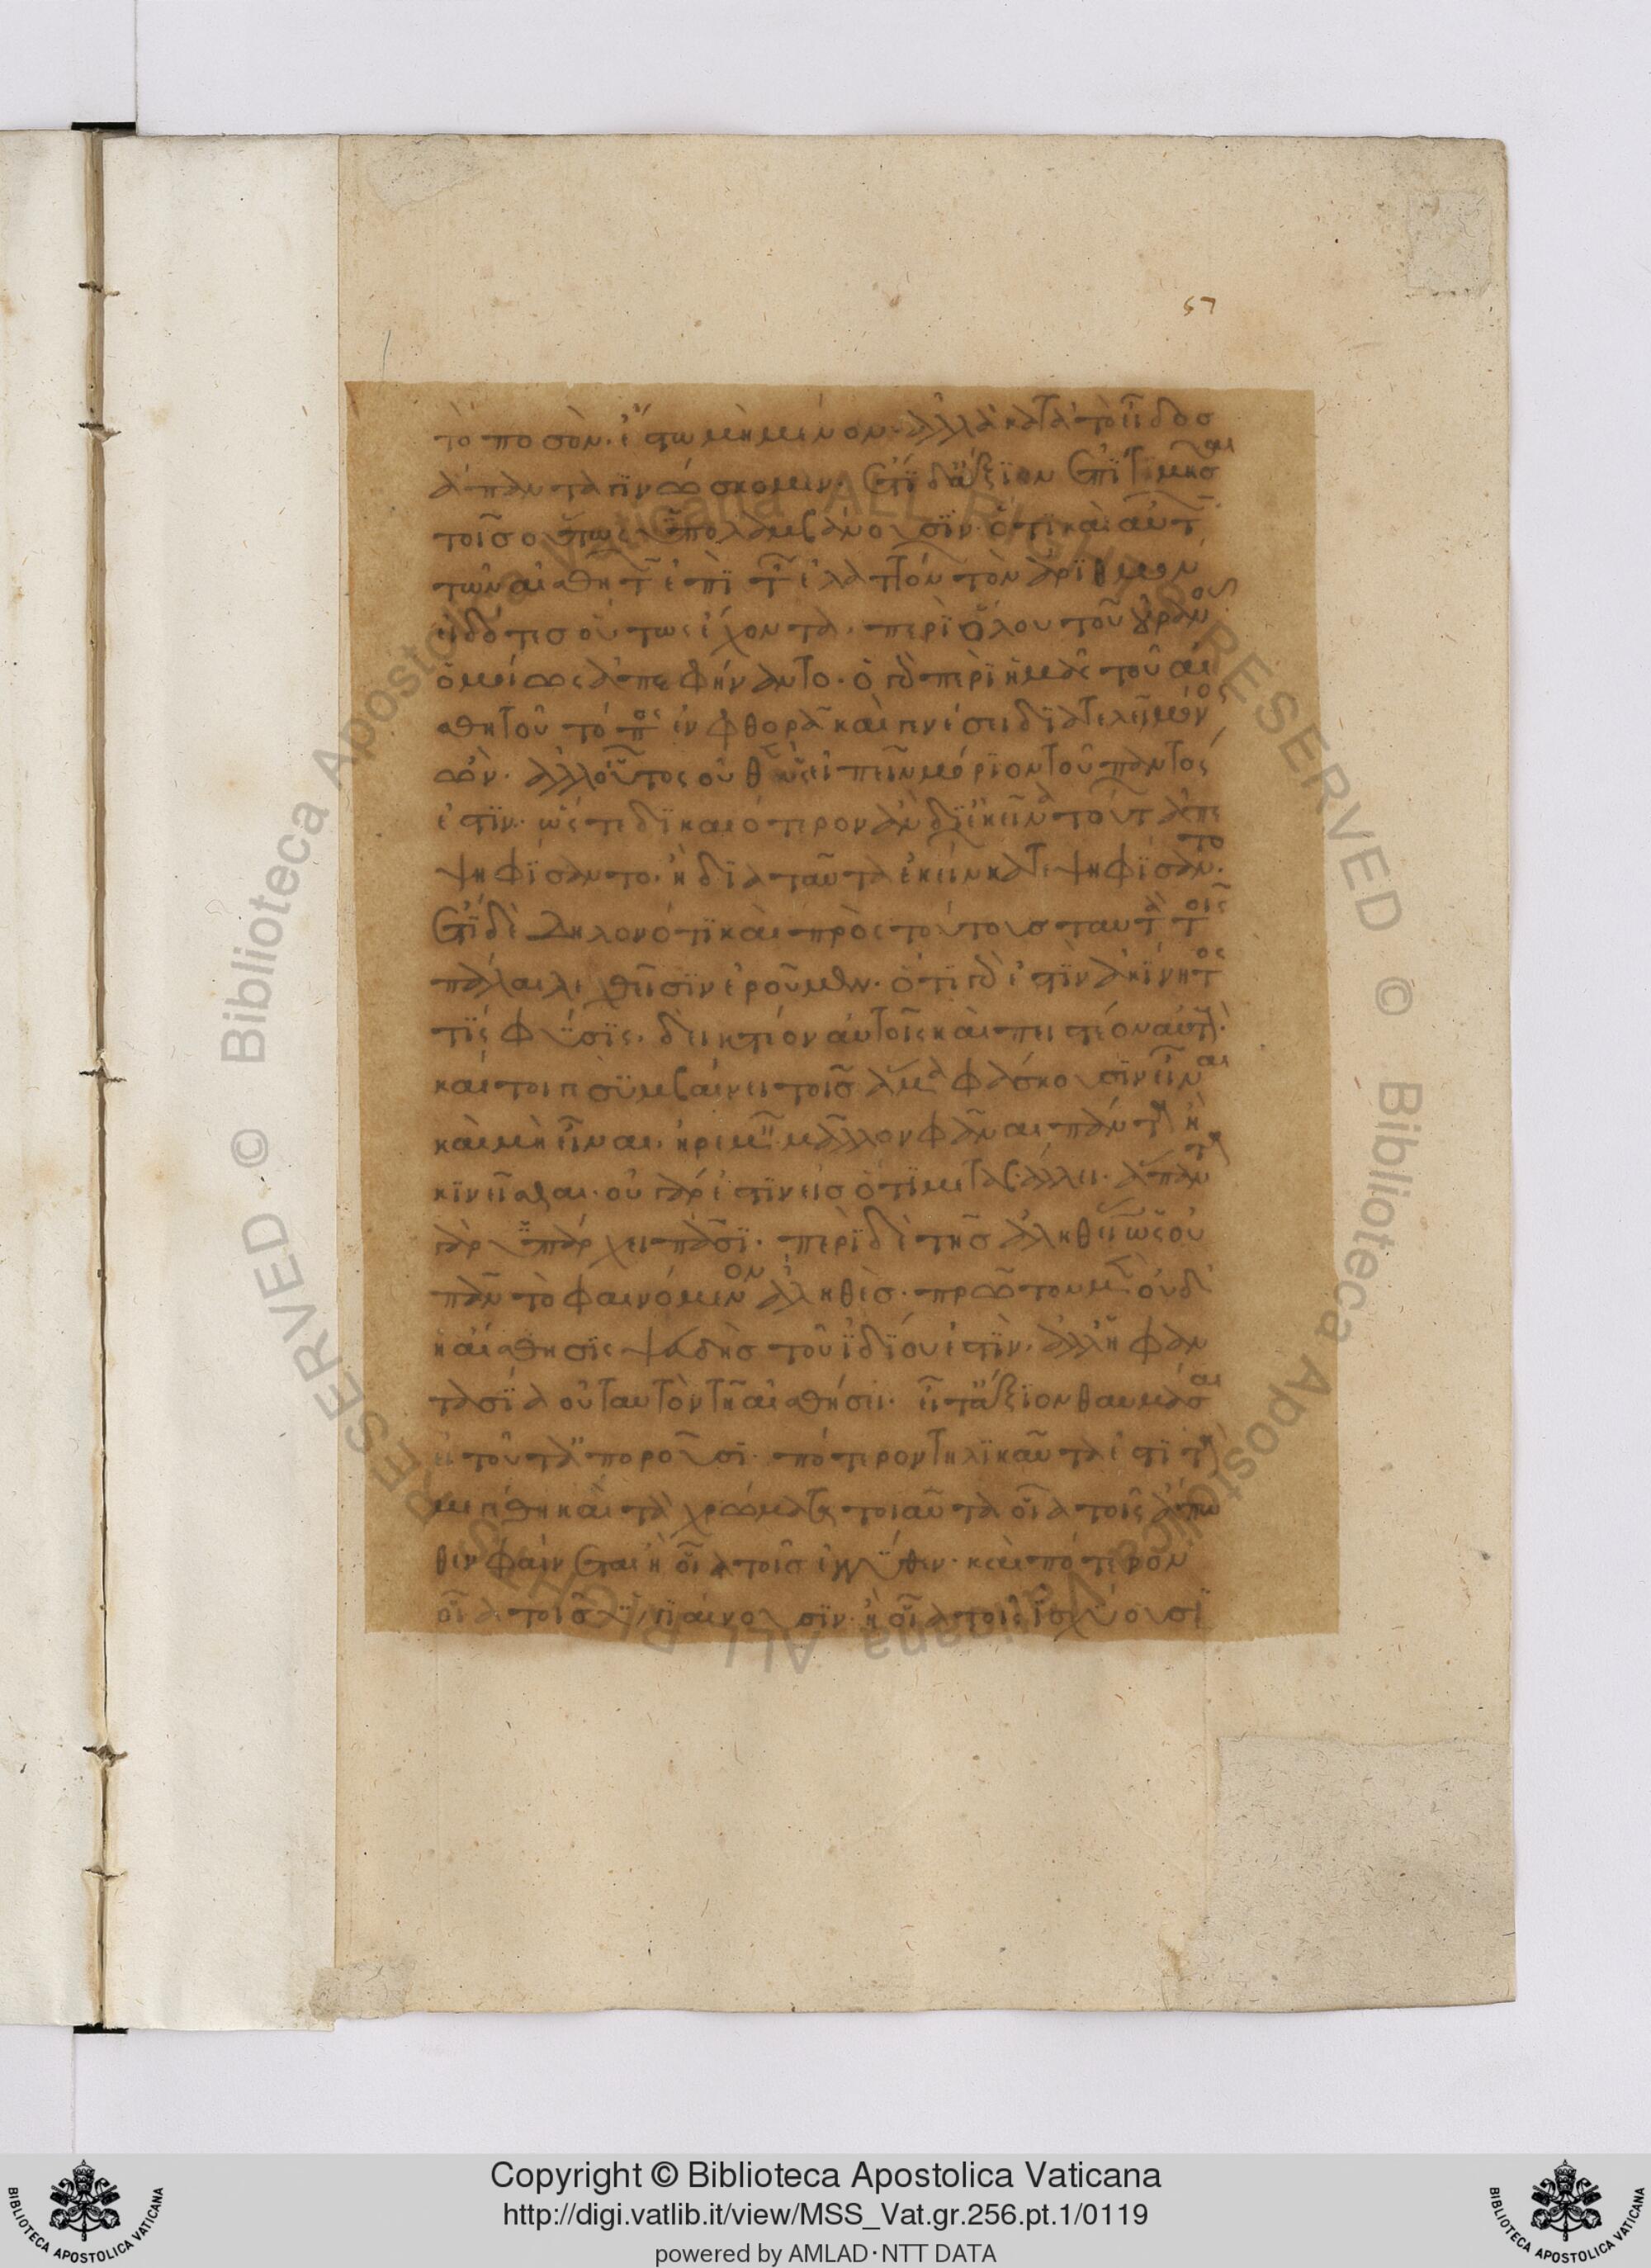 57
τὸ ποσὸν. ἔστω μὴ μένον. ἀλλὰ κατὰ τὸ εἶδος
ἅπαντα γινώσκομεν. ἔτι δ' ἄξιον ἐπιτιμῆσαι
τοῖς οὕτως ὑπολαμβάνουσιν. ὅτι καὶ αὐτ
τῶν αἰσθητ ἐπὶ τ ἐλαττόν τὸν ἀριθμὸν
εἰδότες οὕτως ἔχοντα. περὶ ὅλου τοῦ οὐρανοῦ
ὁμοίως ἀπεφήναντο. ὁ γὰρ περὶ ἡμᾶς τοῦ αἰ
σθητοῦ τόπος ἐν φθορᾷ καὶ γενέσει διατελεῖ μόνος
ὤν. ἀλλ' οὗτος οὐθὲν ὡς εἰπεῖν μόριον τοῦ παντός
ἐστιν. ὥστε δικαιότερον ἂν δι' ἐκεῖνα τούτ ἀπε
ψηφίσαντο. ἢ διὰ ταῦτα ἐκείν κατεψηφίσαντο.
ἔτι δὲ δηλονότι καὶ πρὸς τούτους ταὐτὰ τοῖς
πάλαι λεχθεῖσιν ἐροῦμεν. ὅτι γὰρ ἐστιν ἀκίνητος
τίς φύσις. δεικτέον αὐτοῖς καὶ πειστέον αὐτ.
καί τοι γε συμβαίνει τοῖς ἅμα φάσκουσιν εἶναι
καὶ μὴ εἶναι. ἠρεμεῖν μᾶλλον φάναι πάντα ἢ
κινεῖσθαι. οὐ γάρ ἐστιν εἰς ὅτι μεταβάλλει. ἅπαντα
γὰρ ὑπάρχει πᾶσι. περὶ δὲ τῆς ἀληθεί ὡς οὐ
πᾶν τὸ φαινόμενον ἀληθές. πρῶτον μ οὐδ'
ἡ αἴσθησις ψευδὴς τοῦ ἰδίου ἐστίν. ἀλλ' ἡ φαν
τασία οὐ ταυτὸν τῇ αἰσθήσει. εἶτ' ἄξιον θαυμάσαι
εἰ τοῦτ' ἀποροῦσι. πότερον τηλικαῦτα ἐστι τὰ
μεγέθη καὶ τὰ χρώματα τοιαῦτα οἷα τοῖς ἄπω
θεν φαίνεται ἢ οἷα τοῖς ἐγγύθεν. καὶ πότερον
οἷα τοῖς ὑγιαίνουσιν. ἢ οἷα τοῖς ἰσχύουσι
Copyright © Biblioteca Apostolica Vaticana
http://digi.vatlib.it/view/MSS_Vat.gr.256.pt.1/0119
powered by AMLAD·NTT DATA